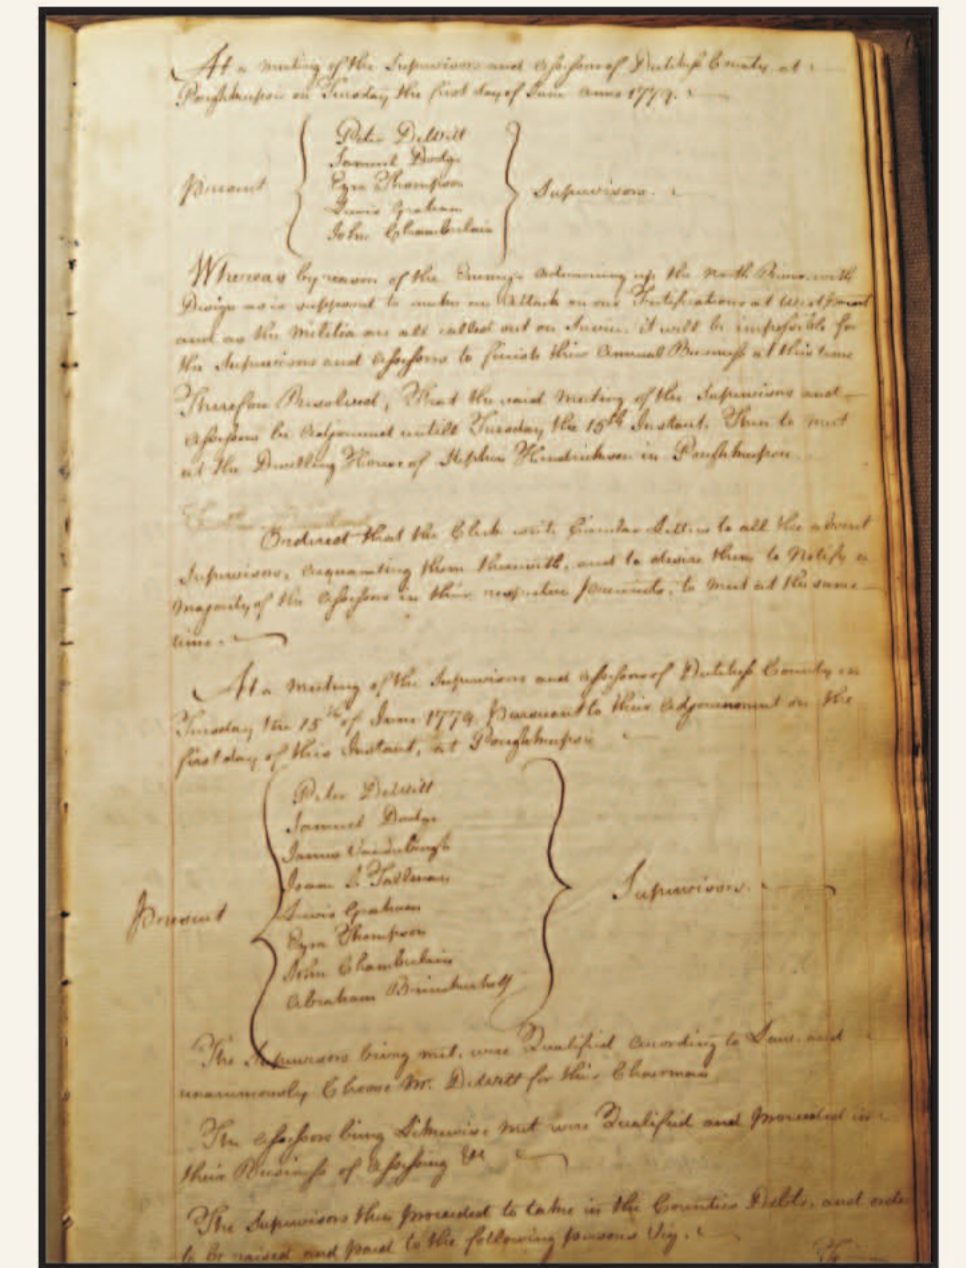 At a meeting of the Supervisors and Assessors of Dutchess County at
Poughkeepsie on Tuesday the first day of June anno 1779.
Present
Peter DeWitt
Samuel Dodge
Ezra Thompson
Lewis Graham
John Chamberlain
Supervisors.
Whereas by reason of the Enemys advancing up the North River with
Design as is supposed to make an Attack on our Fortifications at West Point
and as the Militia are all called out on Service, it will be impossible for
the Supervisors and Assessors to finish their Annual Business at this time
Therefore Resolved, That the said Meeting of the Supervisors and
Assessors be Adjourned untill Tuesday the 15th Instant. Then to meet
at the Dwelling House of Stephen Hendrickson in Poughkeepsie
Ordered that the Clerk write Circular Letters to all the absent
Supervisors, acquainting them therewith, and to desire them to Notify a
Majority of the Assessors in their respective Precincts, to meet at the same
time.
At a Meeting of the Supervisors and Assessors of Dutchess County on
Tuesday the 15th of June 1779. Pursuant to their Adjournment on the
first day of this Instant, at Poughkeepsie
Present
Peter DeWitt
Samuel Dodge
James Vanderburgh
Isaac I. Tallman
Lewis Graham
Ezra Thompson
John Chamberlain
Abraham Brinckerhoff
Supervisors.
The Supervisors being met, were Qualified according to Law, and
unanimously Choose Mr. DeWitt for their Chairman
The Assessors being Likewise met were Qualified and proceeded in
their Business of Assessing &c
The Supervisors then proceeded to take in the Counties Debts, and order
to be raised and paid to the following persons Viz.